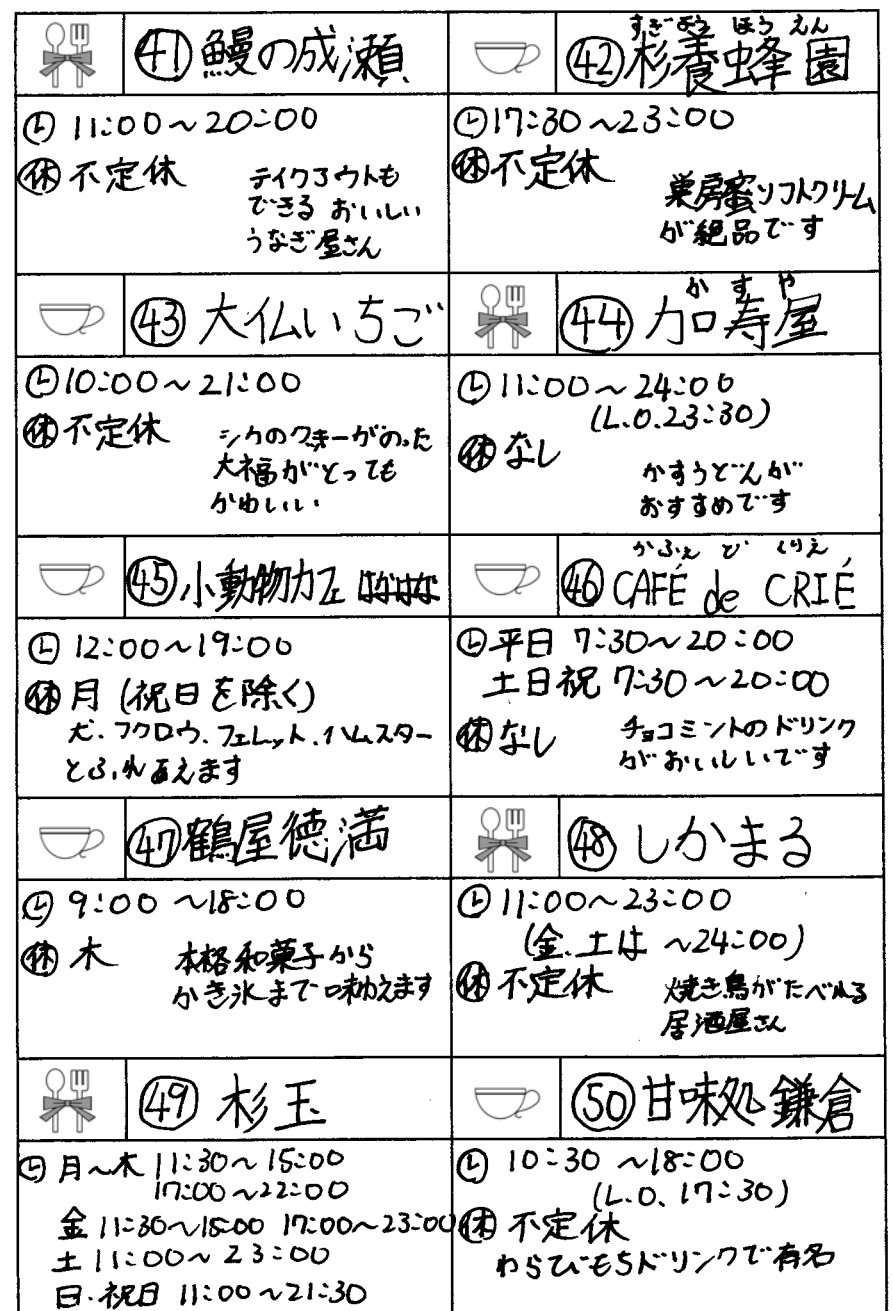 ㊶鰻の成瀬
11:00~20:00
休 不定休
テイクアウトも
できる おいしい
うなぎ屋さん
すぎようほうえん
㊷杉養蜂園
17:30~23:00
休 不定休
巣房蜜ソフトクリーム
が絶品です
㊸大仏いちご
10:00~21:00
休 不定休
シカのクッキーがのった
大福がとっても
かわいい
かすや
㊹加寿屋
11:00~24:00
(L.O.23:30)
休 なし
かすうどんが
おすすめです
㊺小動物カフェ はなはな
12:00~19:00
休 月(祝日を除く)
犬、フクロウ、フェレット、ハムスター
とふれあえます
かふぇ ど くりえ
㊻CAFÉ de CRIÉ
平日 7:30~20:00
土日祝 7:30~20:00
休 なし
チョコミントのドリンク
がおいしいです
㊼鶴屋徳満
9:00~18:00
休 木
本格和菓子から
かき氷まで味わえます
㊽しかまる
11:00~23:00
(金、土は ~24:00)
休 不定休
焼き鳥がたべれる
居酒屋さん
㊾杉玉
月~木 11:30~15:00
17:00~22:00
金 11:30~15:00 17:00~23:00
土 11:00~23:00
日・祝日 11:00~21:30
㊿甘味処 鎌倉
10:30~18:00
(L.O.17:30)
休 不定休
わらびもちドリンクで有名